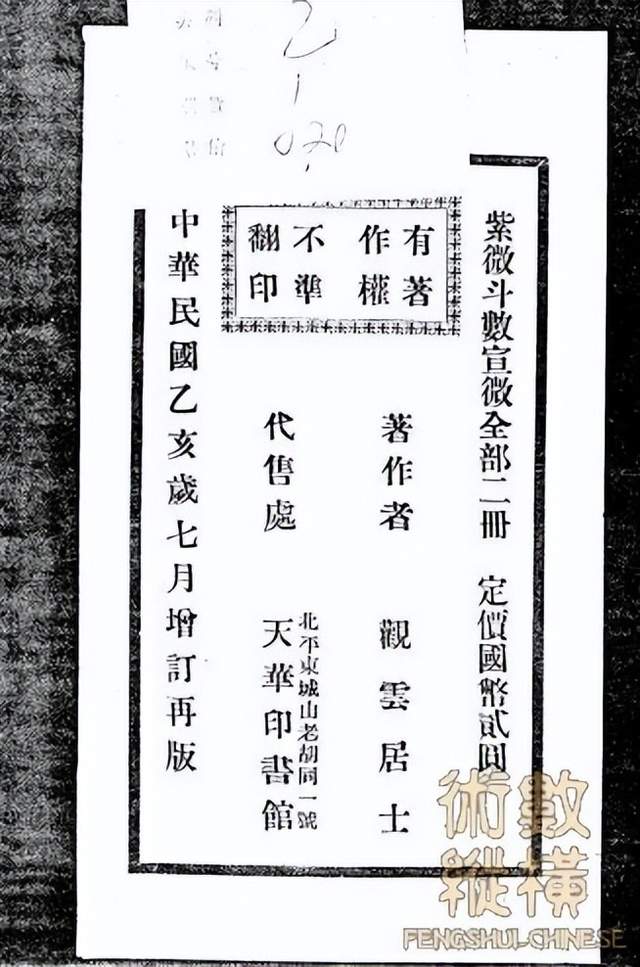 乙
1
020
紫微斗數宣微全部二冊　定價國幣貳圓
有著
作權
不準
翻印
著作者　觀雲居士
代售處　北平東城山老胡同一號
天華印書館
中華民國乙亥歲七月增訂再版
術數
縱橫
FENGSHUI-CHINESE